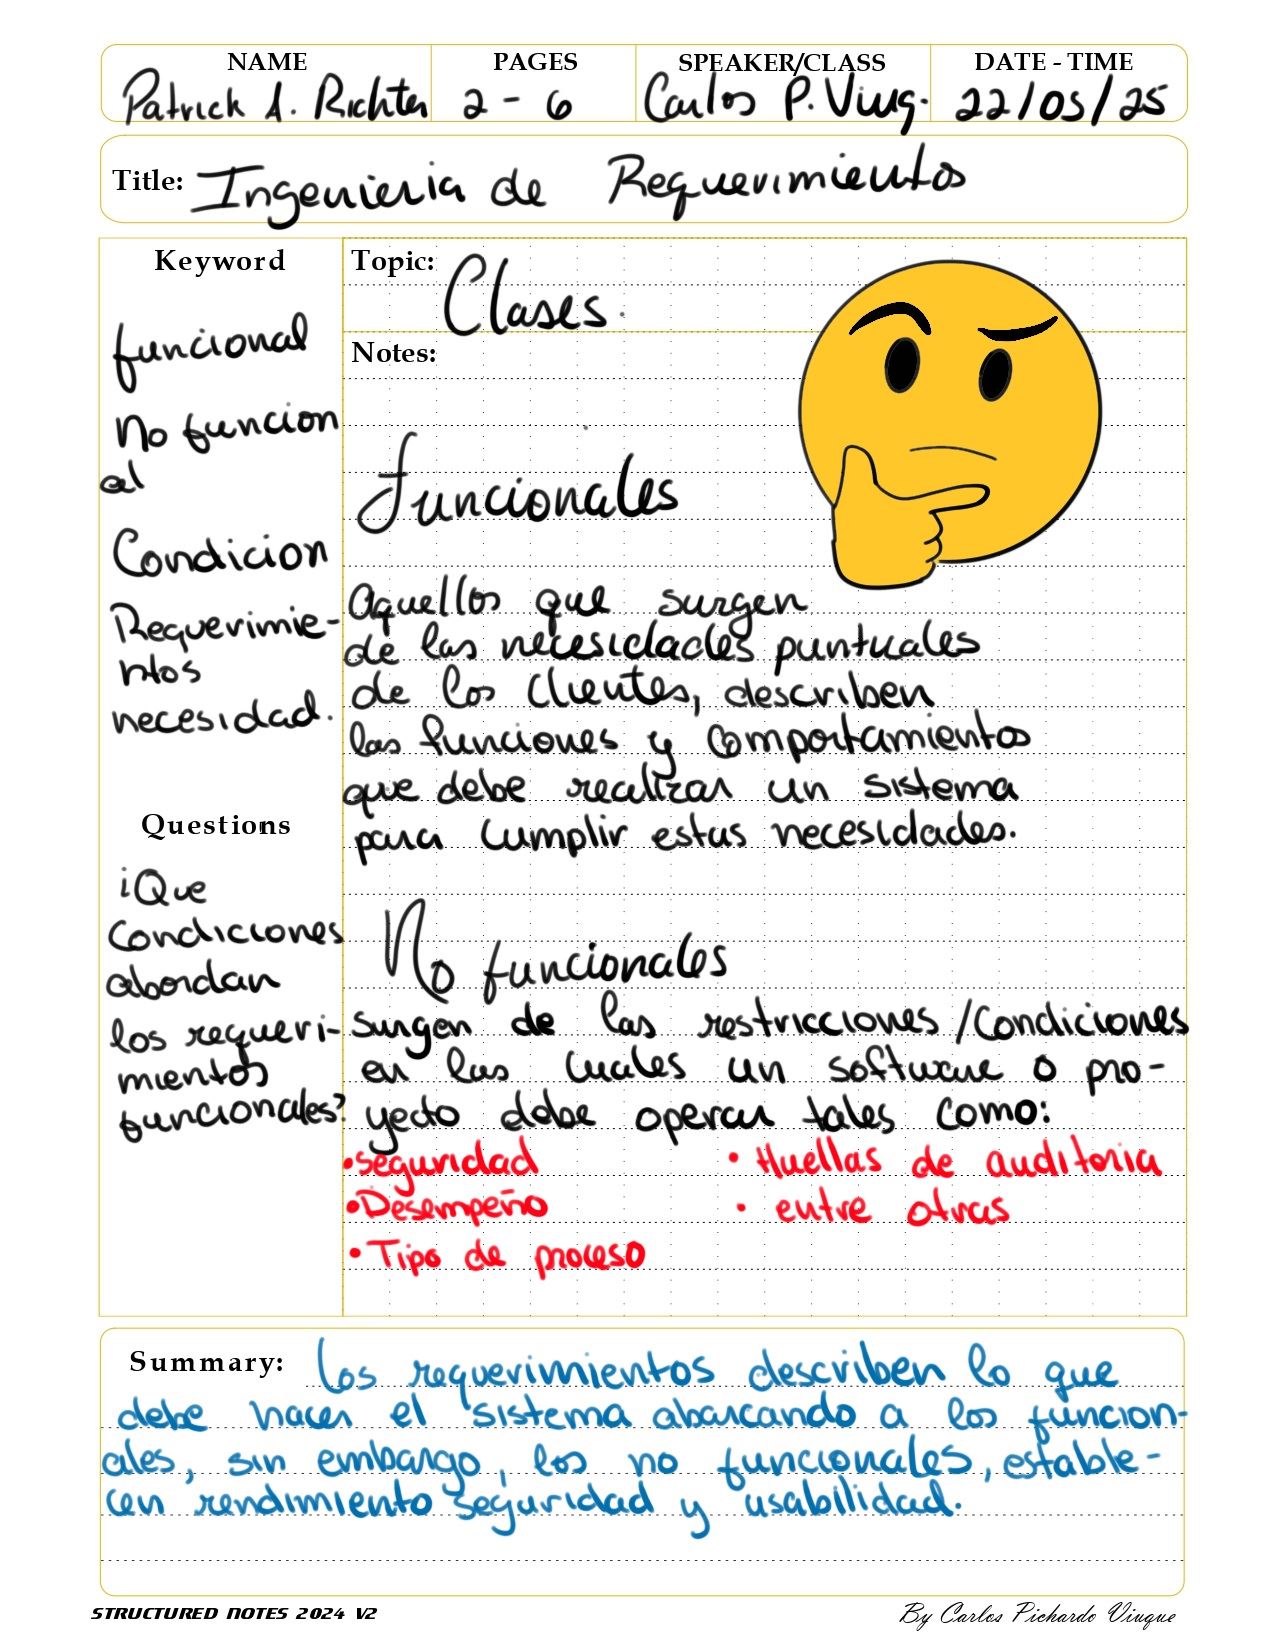 NAME PAGES SPEAKER/CLASS DATE - TIME
Patrick A. Richter 2 - 6 Carlos P. Viuq. 22/05/25
Title: Ingenieria de Requerimientos
Keyword
funcional
No funcion
al
Condicion
Requerimie-
ntos
necesidad.
Questions
¡Que
Condiciones
abordan
los requeri-
mientos
funcionales?
Topic: Clases.
Notes:
Funcionales
Aquellos que surgen
de las necesidades puntuales
de los clientes, describen
las funciones y comportamientos
que debe realizar un sistema
para cumplir estas necesidades.
No funcionales
Surgen de las restricciones /Condiciones
en las cuales un software o pro-
yecto debe operar tales como:
•Seguridad • Huellas de auditoria
•Desempeño • entre otras
• Tipo de proceso
Summary: Los requerimientos describen lo que
debe hacer el sistema abarcando a los funcion-
ales, sin embargo, los no funcionales, estable-
cen rendimiento seguridad y usabilidad.
STRUCTURED NOTES 2024 V2 By Carlos Pichardo Viuque